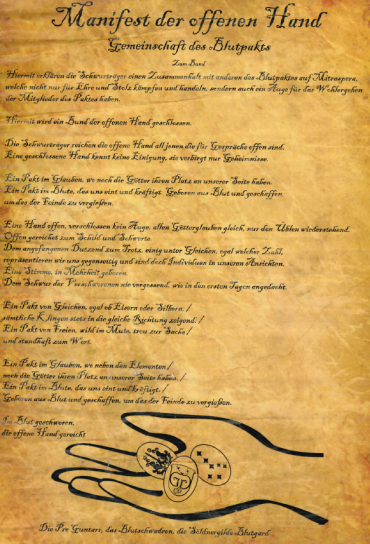 Manifest der offenen Hand
Gemeinschaft des Blutpakts
Zum Bund
Hiermit erklären die Schwurträger einen Zusammenhalt mit anderen des Blutpaktes auf Mitraspera,
welche nicht nur für Ehre und Stolz kämpfen und handeln, sondern auch ein Auge für das Wohlergehen
der Mitglieder des Paktes haben.
Hiermit wird ein Bund der offenen Hand geschlossen.
Die Schwurträger reichen die offene Hand all jenen die für Gespräche offen sind.
Eine geschlossene Hand kennt keine Einigung, sie verbirgt nur Geheimnisse.
Ein Pakt im Glauben, wo noch die Götter ihren Platz an unserer Seite haben.
Ein Pakt im Blute, das uns eint und kräftigt. Geboren aus Blut und geschaffen,
um das der Feinde zu vergießen.
Eine Hand offen, verschlossen kein Auge, allen Göttern gleich, nur den Üblen wiederstehend.
Offen gereichet zum Schild und Schwerte.
Dem angefangenen Dutzend zum Trotz, einig unter Gleichen, egal welcher Zahl,
repräsentieren wir uns gegenseitig und sind doch Individuen in unseren Ansichten.
Eine Stimme, in Mehrheit geboren.
Dem Schwur der nie vergessend, wie in den ersten Tagen angedacht.
Ein Pakt von Gleichen, egal ob Eisern oder Silbern, /
sämtliche Klingen stets in die gleiche Richtung zeigend. /
Ein Pakt von Freien, wild im Mute, treu zur Sache /
und standhaft zum Wort.
Ein Pakt im Glauben, wo neben den Elementen /
noch die Götter ihren Platz an unserer Seite haben. /
Ein Pakt im Blute, das uns eint und kräftigt, /
Geboren aus Blut und geschaffen, um das der Feinde zu vergießen.
Blut geschworen,
die offene Hand gereicht
Die Pre Guntari, das Blutschwadron, die Söldnergilde Blutgard